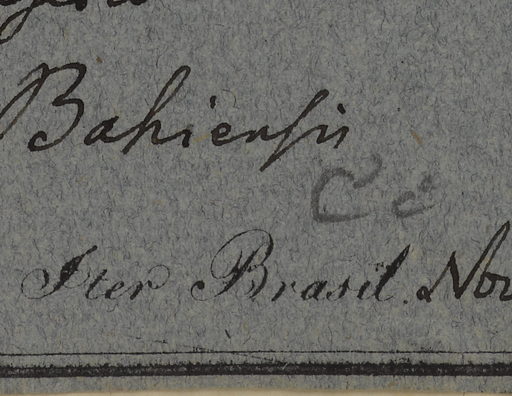 Bahiensis
Cc
Iter Brasil. Nov